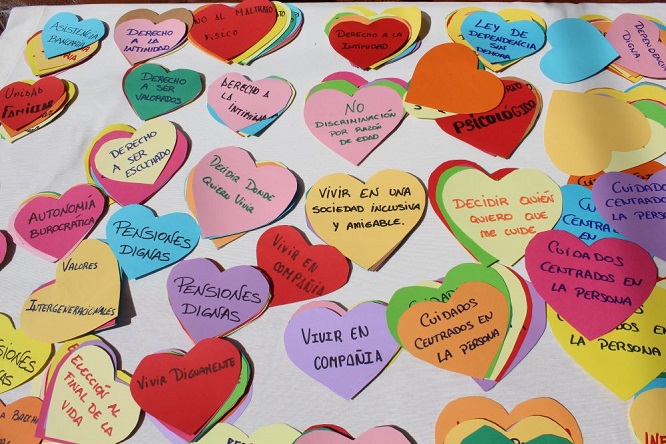 ASISTENCIA
BANCARIA
DERECHO
A LA
INTIMIDAD
NO AL MALTRATO
FÍSICO
DERECHO A LA
INTIMIDAD
LEY DE
DEPENDENCIA
SIN
DEMORA
DEPENDENCIA
DIGNA.
UNIDAD
FAMILIAR
DERECHO
A SER
VALORADOS
DERECHO A
LA INTIMIDAD
NO
DISCRIMINACIÓN
POR RAZÓN
DE EDAD
PSICOLÓGICO
DERECHO
A SER
ESCUCHADO
DECIDIR DONDE
QUIERO VIVIR
VIVIR EN UNA
SOCIEDAD INCLUSIVA
Y AMIGABLE.
DECIDIR QUIÉN
QUIERO QUE
ME CUIDE
CUIDADOS
CENTRADOS
EN
CUIDADOS
CENTRADOS EN
LA PERSONA
AUTONOMÍA
BUROCRÁTICA
PENSIONES
DIGNAS
VIVIR EN
COMPAÑÍA
CUIDADOS
CENTRADOS EN
LA PERSONA
VALORES
INTERGENERACIONALES
PENSIONES
DIGNAS
VIVIR EN
COMPAÑÍA
CUIDADOS
CENTRADOS EN
LA PERSONA
LA PERSONA
PENSIONES
DIGNAS
ELECCIÓN AL
FINAL DE LA
VIDA
VIVIR DIGNAMENTE
BRECHA